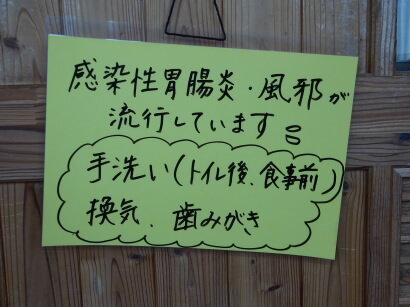 感染性胃腸炎・風邪が
流行しています
手洗い(トイレ後、食事前)
換気、歯みがき